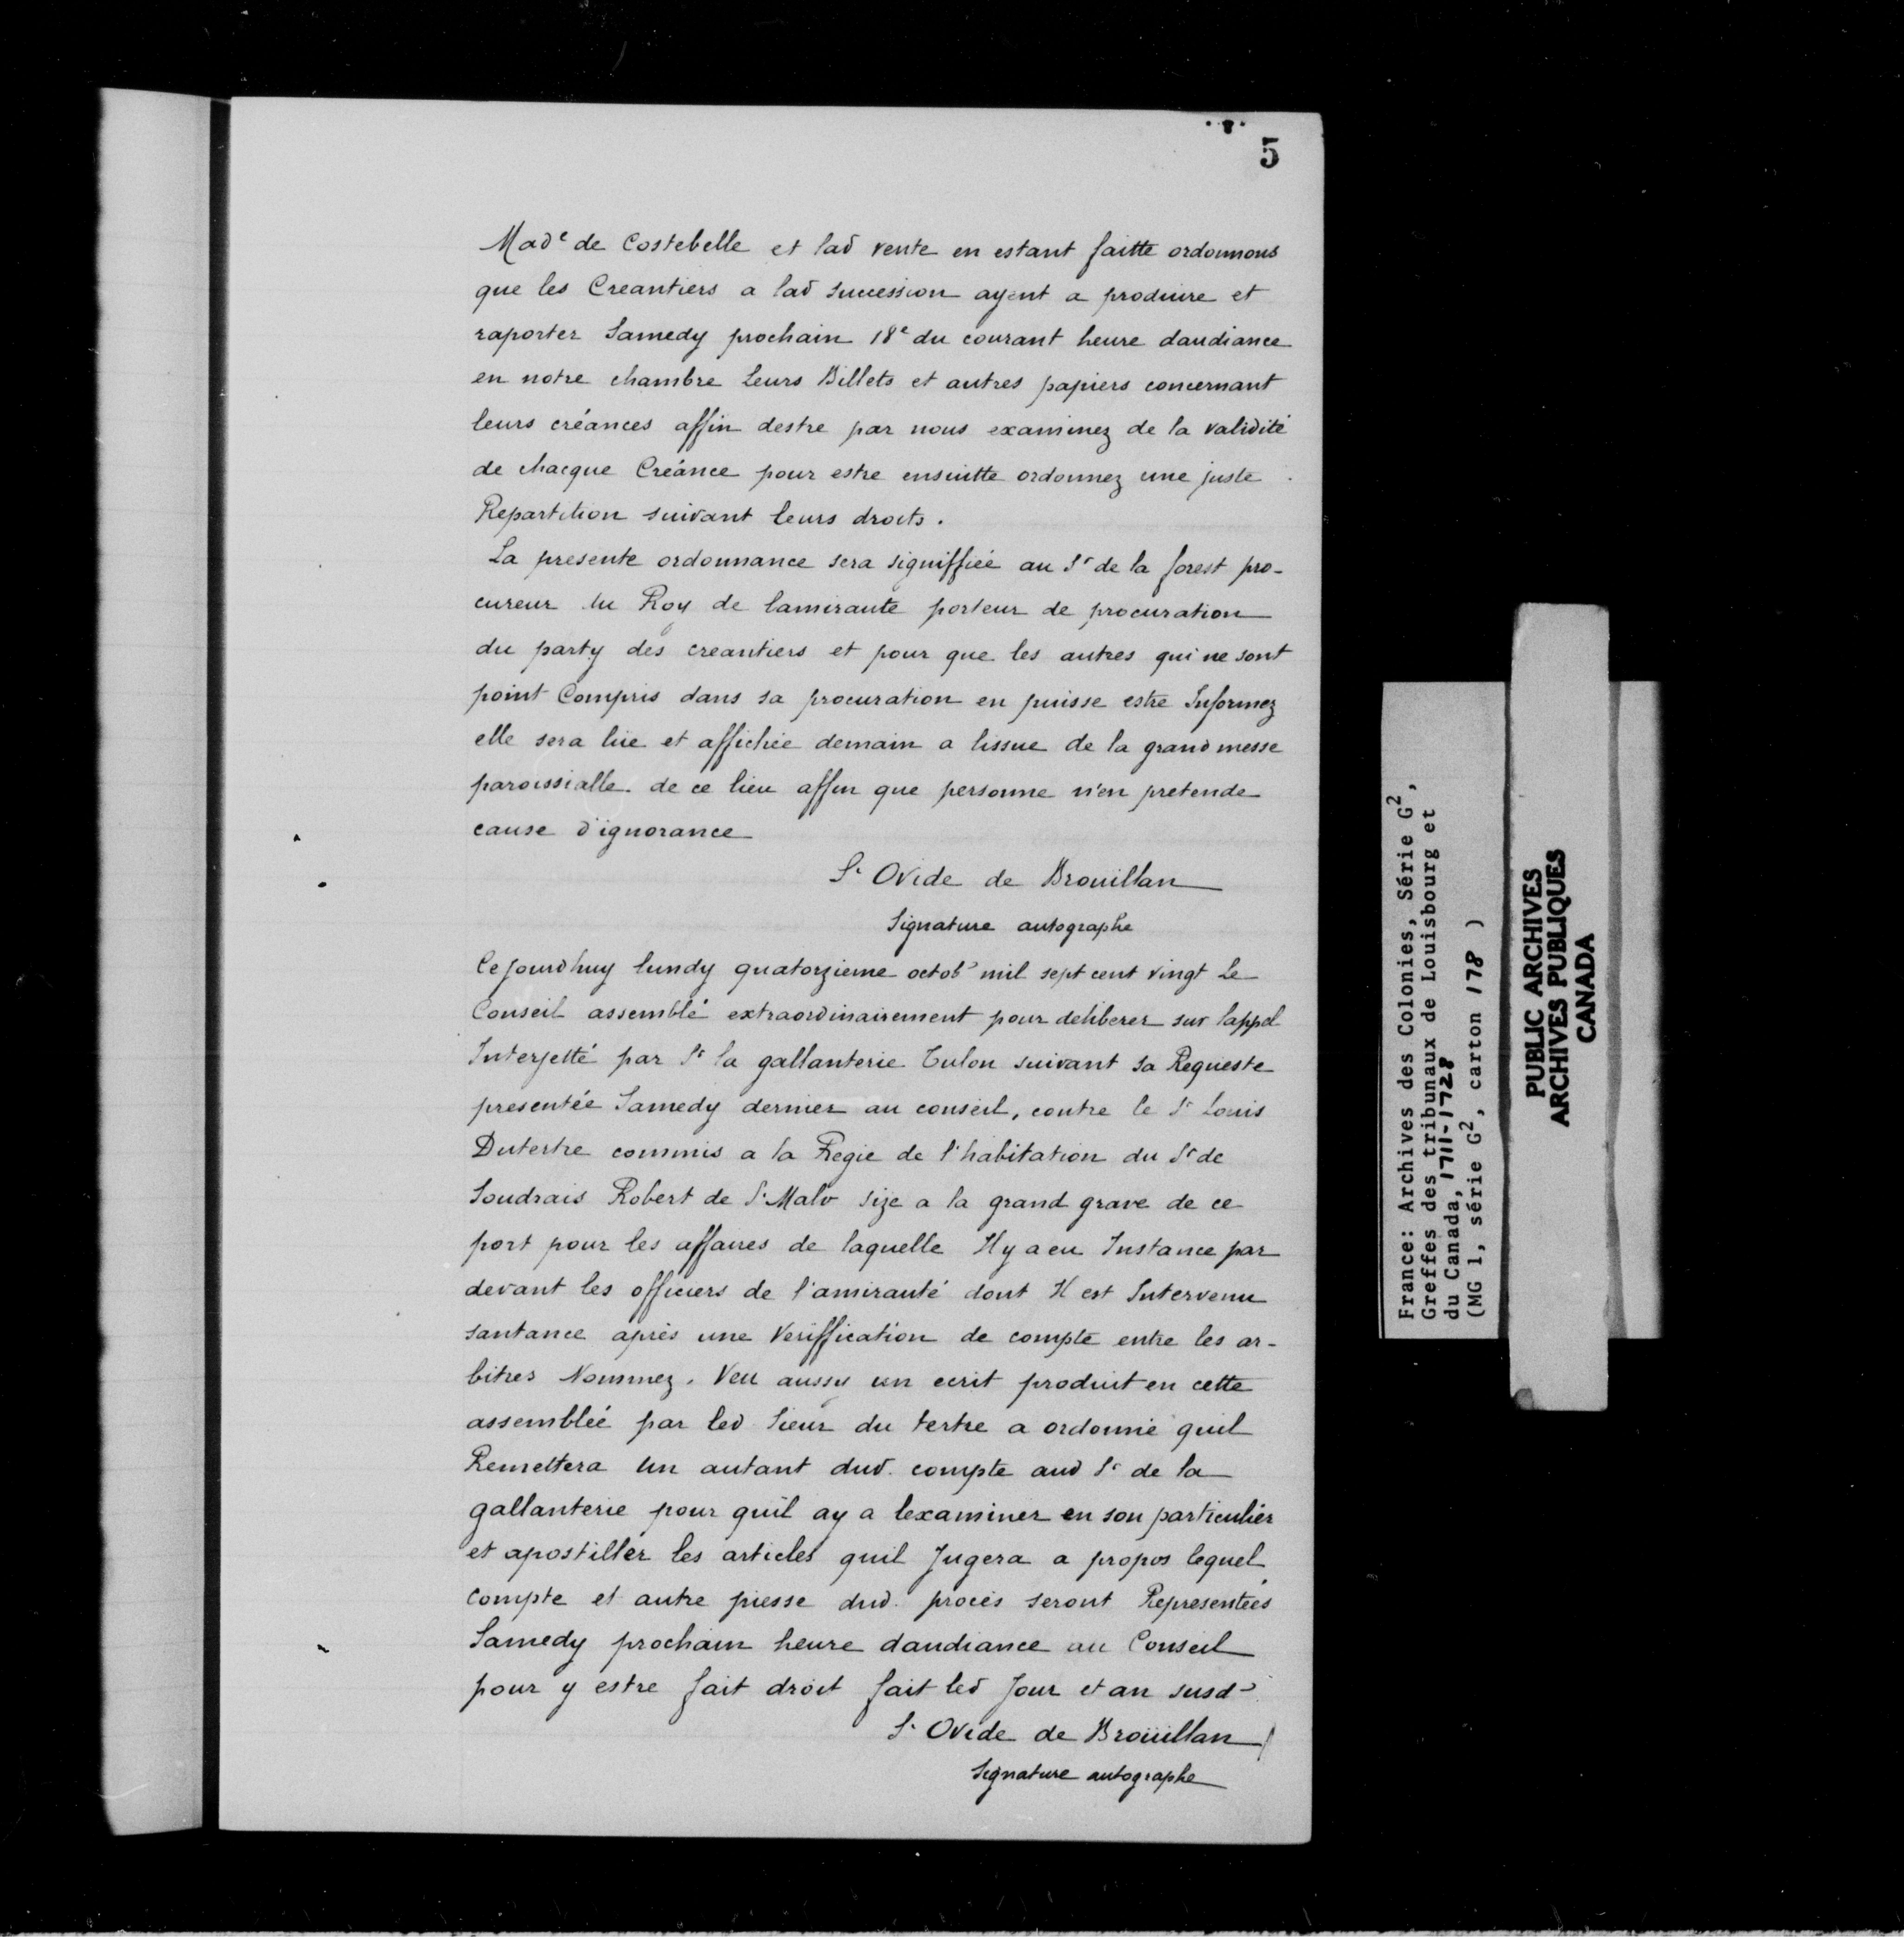 5
Mad^e de Costebelle et lad vente en estant faitte ordonnons
que les Creantiers a lad succession ayent a produire et
raporter Samedy prochain 18^e du courant heure daudiance
en notre chambre Leurs Billets et autres papiers concernant
leurs créances affin destre par nous examinez de la validité
de chacque Créance pour estre ensuitte ordonnez une juste
Repartition suivant leurs droits.
La presente ordonnance sera signiffiée au S^r de la forest pro-
cureur du Roy de lamirauté porteur de procuration
du party des creantiers et pour que les autres qui ne sont
point Compris dans sa procuration en puisse estre Informez
elle sera lüe et affichée demain a lissue de la grand messe
paroissialle de ce lieu affin que personne n'en pretende
cause d'ignorance
S^t Ovide de Brouillan
Signature autographe
Cejourdhuy lundy quatorzieme octob^e mil sept cent vingt Le
Conseil assemblé extraordinairement pour deliberer sur lappel
Interjetté par S^r la gallanterie Tulon suivant sa Requeste
presentée Samedy dernier au conseil, contre le S^r Louis
Dutertre commis a la Regie de l'habitation du S^r de
Soudrais Robert de S^t Malo size a la grand grave de ce
port pour les affaires de laquelle Il y a eu Instance par
devant les officiers de l'amirauté dont Il est Intervenu
santance après une Veriffication de compte entre les ar-
bitres Nommez. Veu aussy un ecrit produit en cette
assemblée par led Sieur du tertre a ordonné quil
Remettera Un autant dud. compte aud S^r de la
gallanterie pour quil ay a lexaminer en son particulier
et apostiller les articles quil Jugera a propos lequel
compte et autre piesse dud. procès seront Representées
Samedy prochain heure daudiance au Conseil
pour y estre fait droit fait led Jour et an susd^t
S^t Ovide de Broüillan
Signature autographe
France: Archives des Colonies, Série G²,
Greffes des tribunaux de Louisbourg et
du Canada, 1711-1728
(MG 1, série G², carton 178 )
PUBLIC ARCHIVES
ARCHIVES PUBLIQUES
CANADA